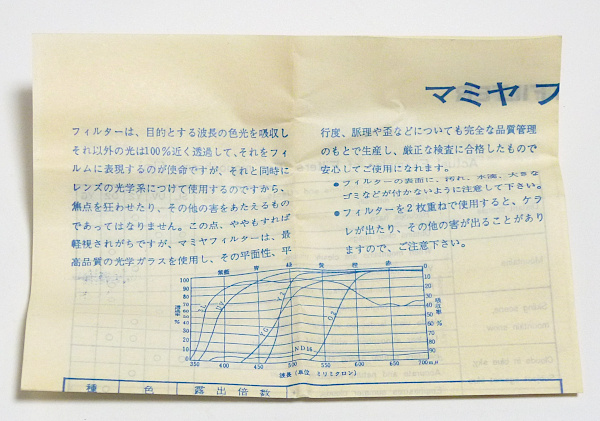 マミヤ フ
フィルターは、目的とする波長の色光を吸収し
それ以外の光は100%近く透過して、それをフィ
ルムに表現するのが使命ですが、それと同時に
レンズの光学系につけて使用するのですから、
焦点を狂わせたり、その他の害をあたえるもの
であってはなりません。この点、ややもすれば
軽視されがちですが、マミヤフィルターは、最
高品質の光学ガラスを使用し、その平面性、平
行度、脈理や歪などについても完全な品質管理
のもとで生産し、厳正な検査に合格したもので
安心してご使用になれます。
●フィルターの表面に、汚れ、水滴、大きな
ゴミなどが付かないように注意して下さい。
●フィルターを2枚重ねで使用すると、ケラ
レが出たり、その他の害が出ることがあり
ますので、ご注意下さい。
100
90
80
70
60
50
40
30
20
10
0
透過率 %
0
10
20
30
40
50
60
70
80
90
吸収率 %
ND
350 400 450 500 550 600 650 700
波長(単位 ミリミクロン)
種 色 露出倍数